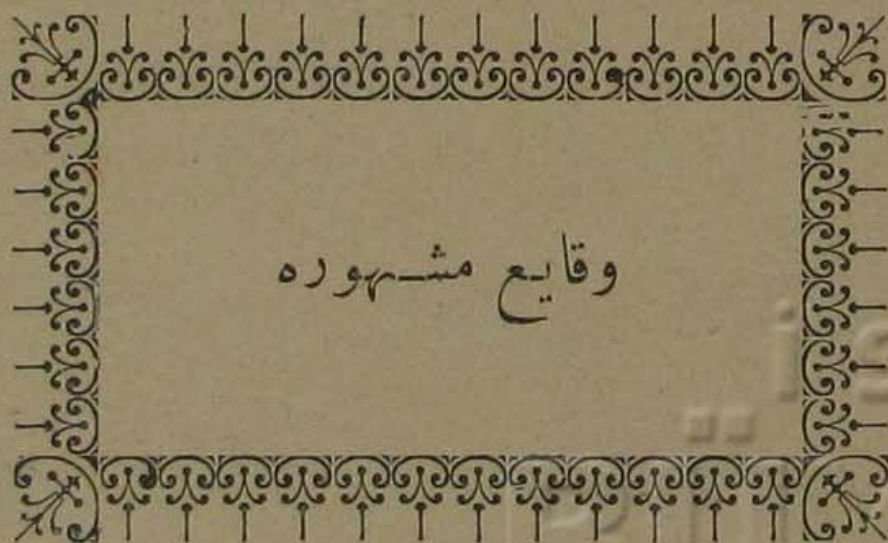 وقایع مشهوره